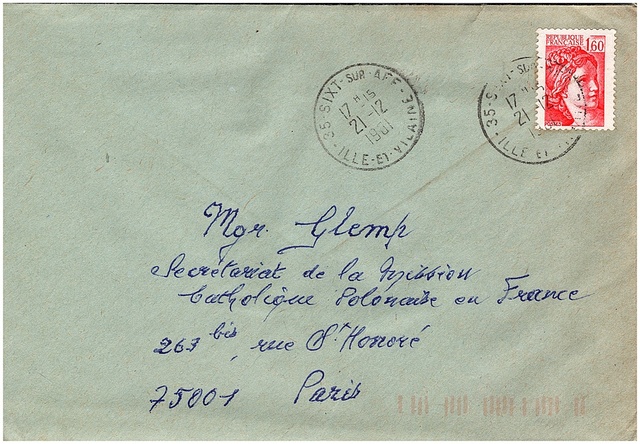 REPUBLIQUE
FRANÇAISE 1,60
35-SIXT-SUR-AFF
17 H 15
21-12
1981
ILLE-ET-VILAINE
35-SIXT-SUR
17 H 15
21-12
19
ILLE ET VI
Mgr. Glemp
Secrétariat de la Mission
Catholique Polonaise en France
263 bis, rue St Honoré
75001 Paris